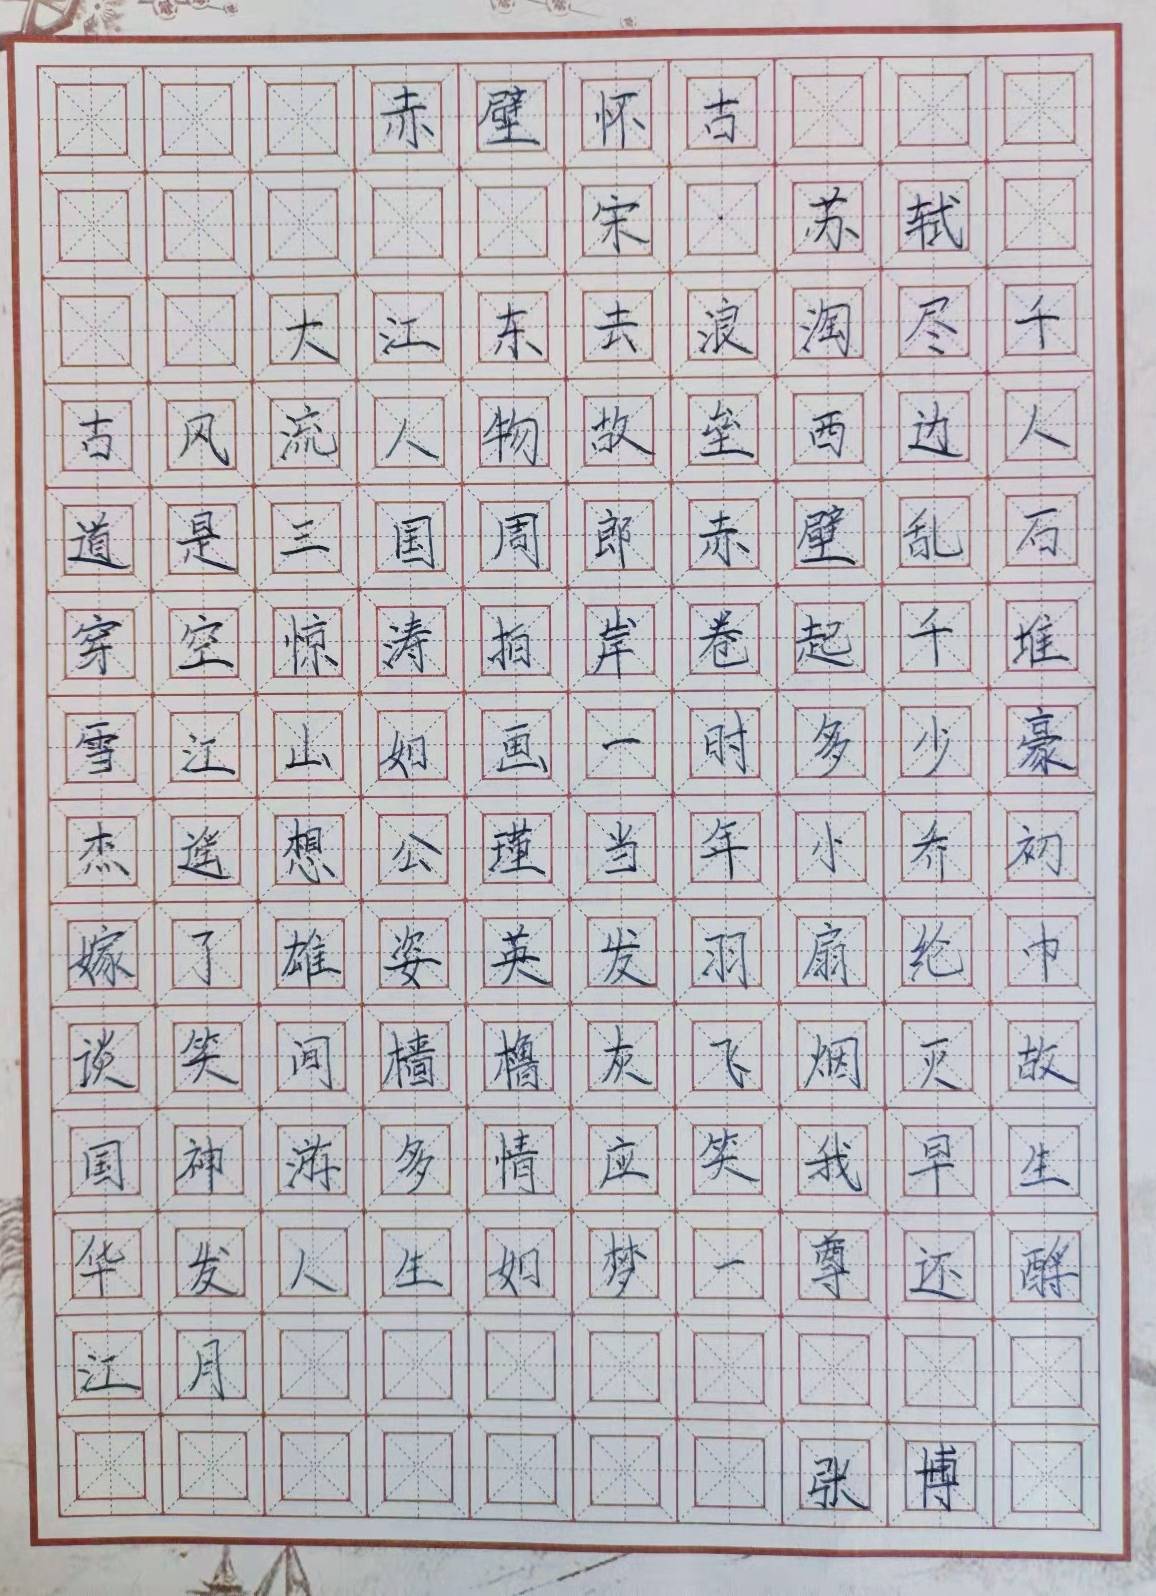 赤壁怀古
宋·苏轼
大江东去浪淘尽千
古风流人物故垒西边人
道是三国周郎赤壁乱石
穿空惊涛拍岸卷起千堆
雪江山如画一时多少豪
杰遥想公瑾当年小乔初
嫁了雄姿英发羽扇纶巾
谈笑间樯橹灰飞烟灭故
国神游多情应笑我早生
华发人生如梦一尊还酹
江月
张博